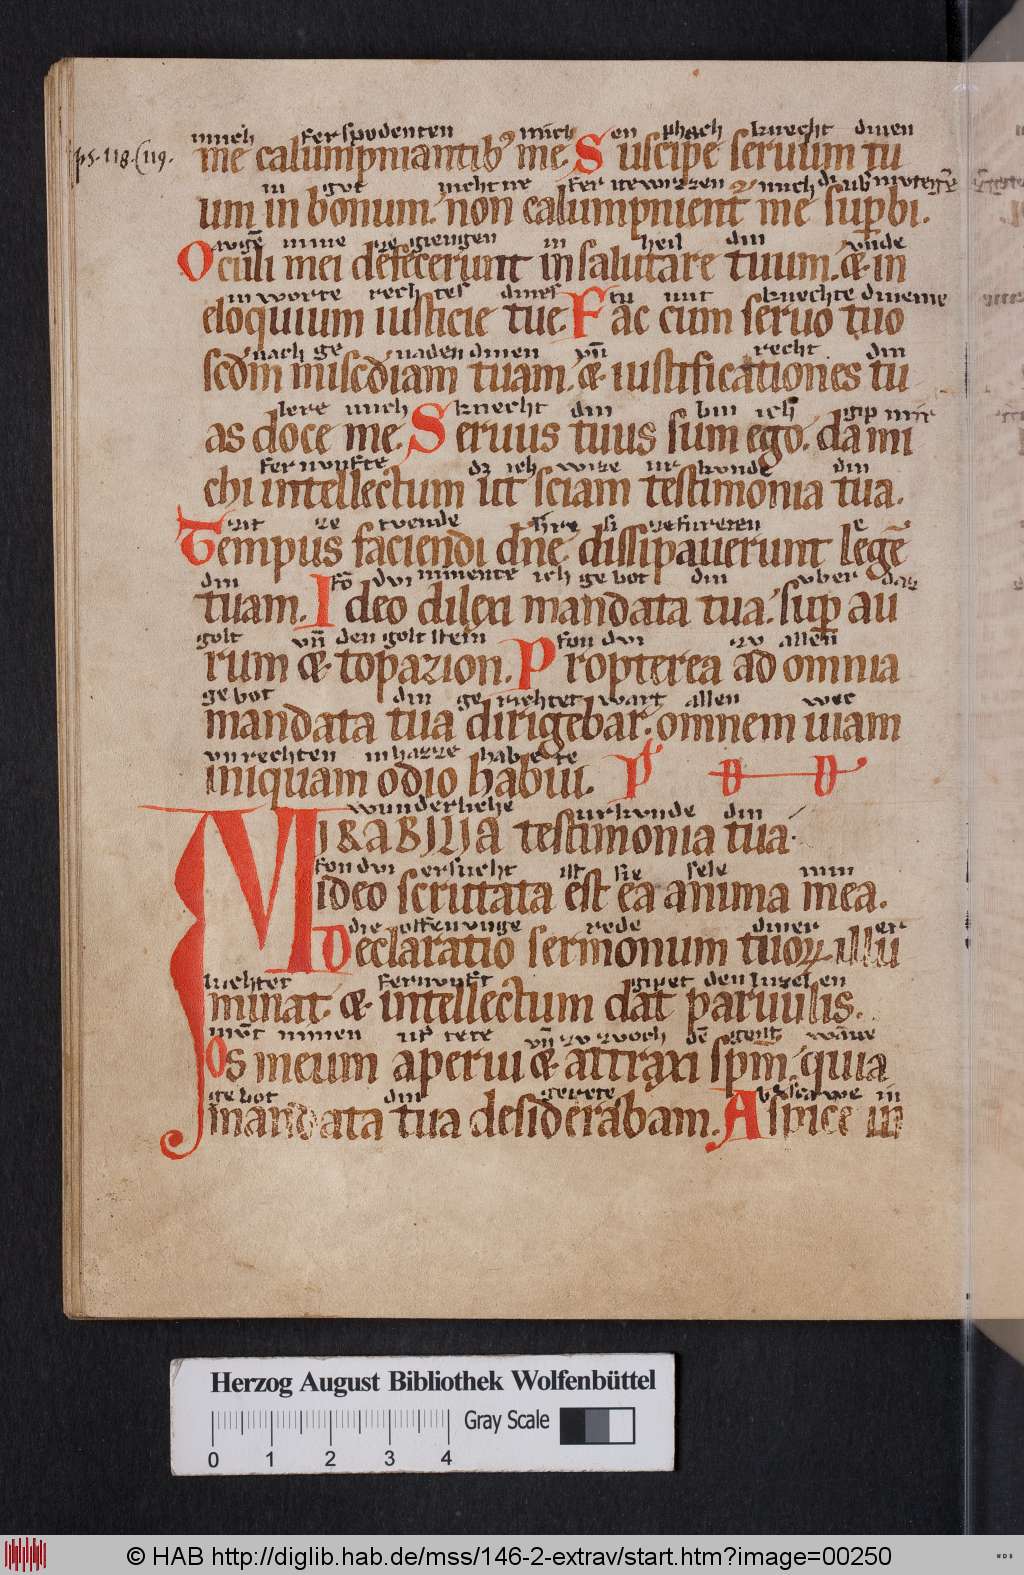 ps. 118. (119.
mich ferspodenten mich en phach knecht dinen
me calumpniantib⁹ me. Suscipe seruum tu
in got nicht ne
um in bonum. non calumpnient me sup̄bi.
in heil din vnde
Oculi mei defecerunt in salutare tuum. & in
in worte rechtes dines tu mit knechte dineme
eloquium iusticie tue. Fac cum seruo tuo
nach genaden dinen vn̄ recht din
scd̄m misc̄diam tuam. & iustificationes tu
lere mich knecht din bin ich gip mir
as doce me. Seruus tuus sum ego. da mi
fernunfte dz ich wize urkunde din
chi intellectum ut sciam testimonia tua.
zit ze tuende
Tempus faciendi dn̄e. dissipauerunt legē
din fō dvi minente ich gebot din vber daz
tuam. Ideo dilexi mandata tua. sup̄ au
golt vn̄ den goltstein fon dvi zv allen
rum & topazion. Propterea ad omnia
gebot din gerichtet wart allen wec
mandata tua dirigebar. omnem uiam
vnrechten in hazze habete
iniquam odio habui.
wunderliche urkunde din
MIRABILIA testimonia tua.
fon dvi ersucht ist sie sele min
ideo scrutata est ea anima mea.
die offenunge rede diner er
Declaratio sermonum tuoꝝ illu
luchtet fernunft gipet den luzelen
minat. & intellectum dat paruulis.
minen vn̄ zv zvoch
Os meum aperui & attraxi spm̄. quia
gebot din gerete
mandata tua desiderabam. Aspice in
Herzog August Bibliothek Wolfenbüttel
Gray Scale
0 1 2 3 4
© HAB http://diglib.hab.de/mss/146-2-extrav/start.htm?image=00250
WDB